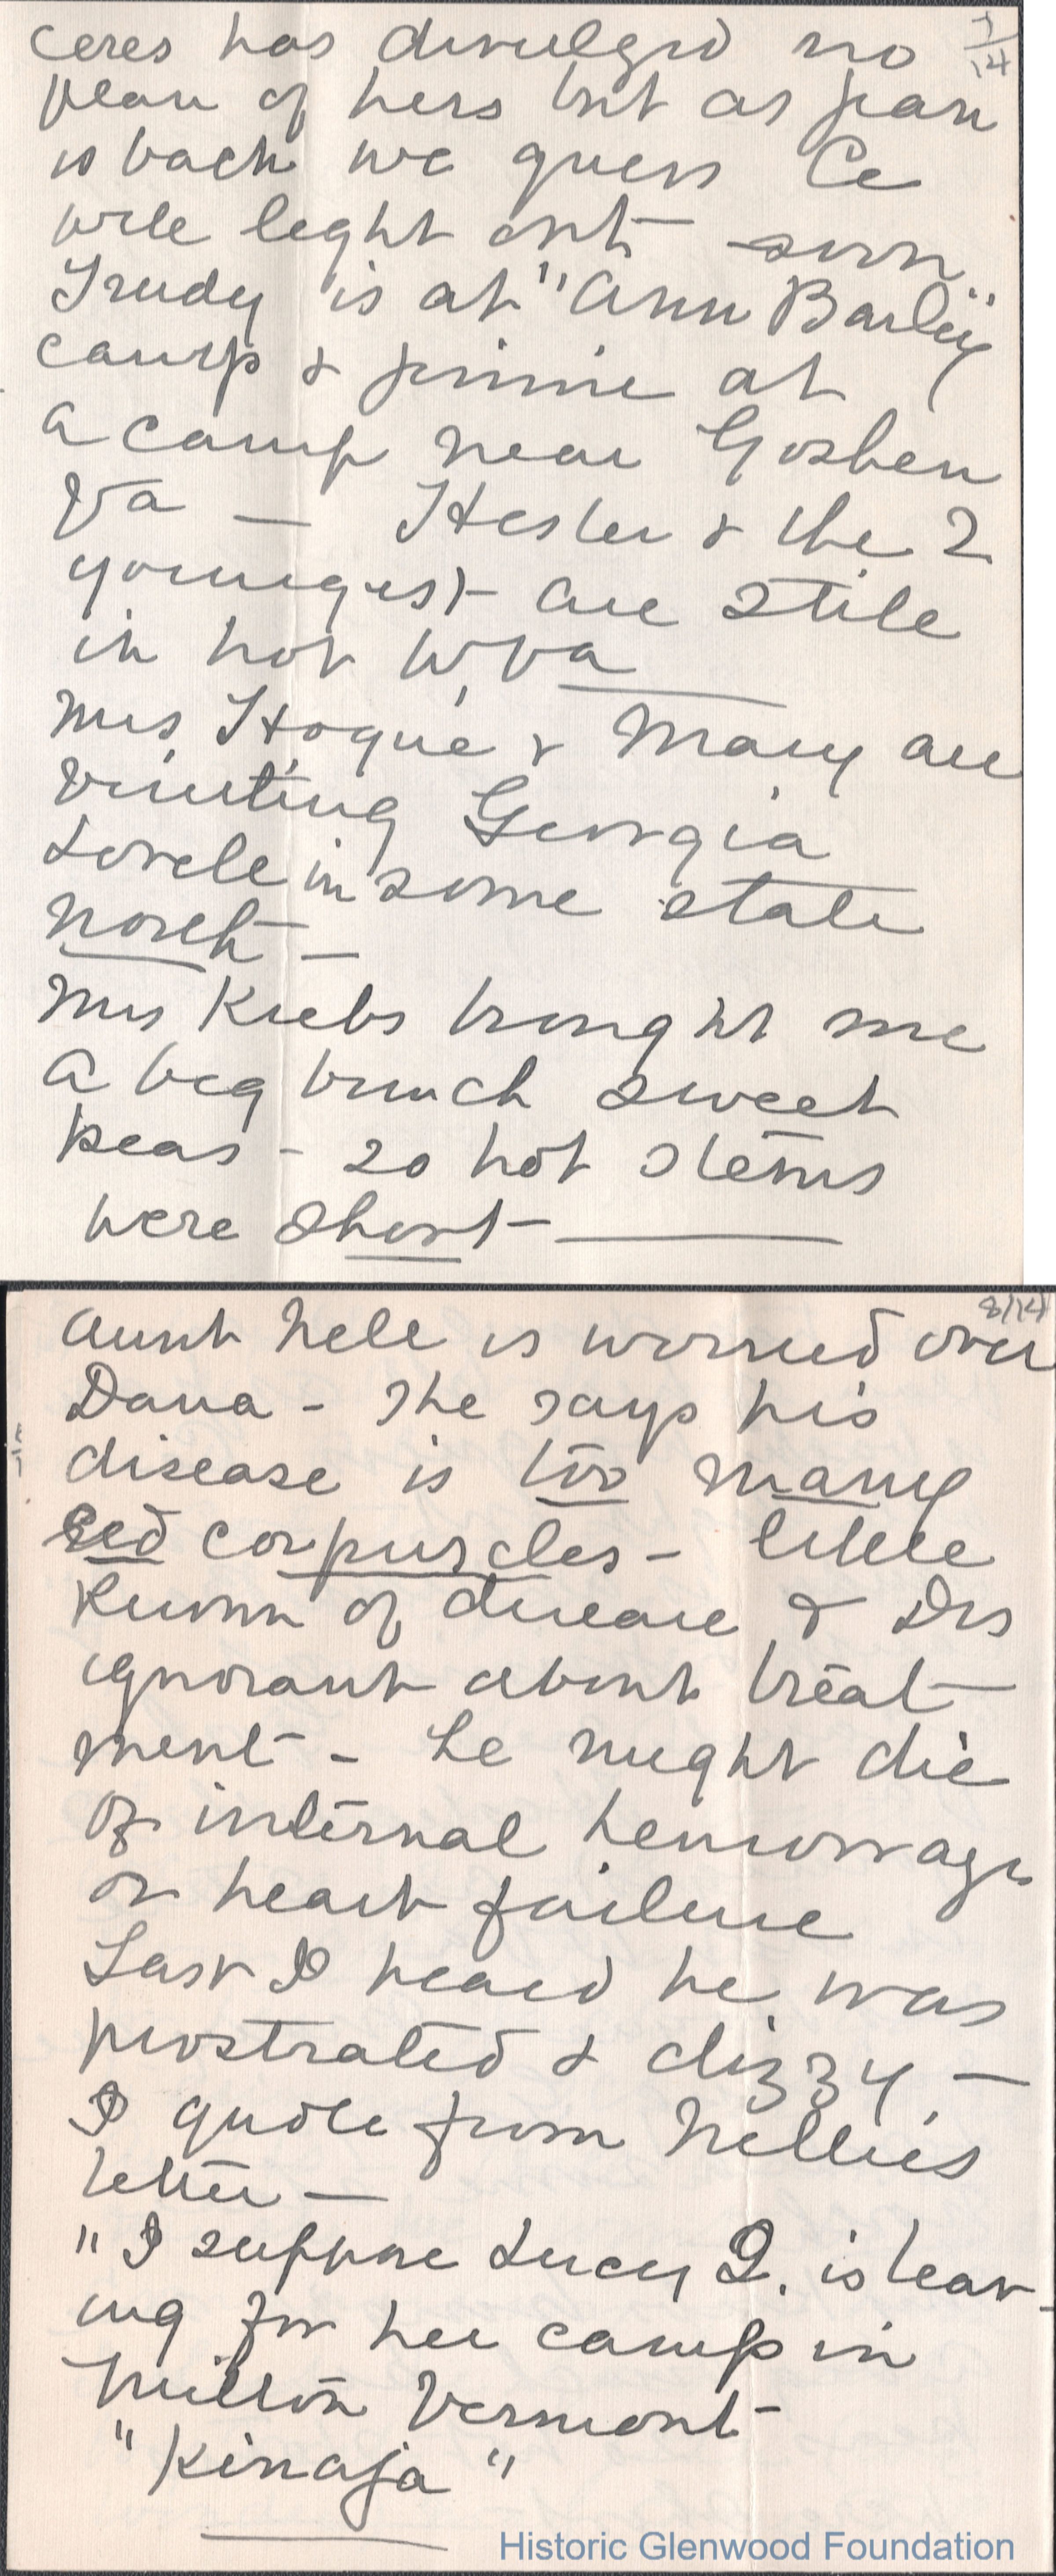 7/14
Ceres has divulged no
plan of hers but as Jean
is back we guess Ce
will light out soon
Trudy is at "Ann Bailey"
camp & Jimmie at
a camp near Goshen
Va — Hester & the 2
youngest are still
in hot W, Va
Mrs Hogue & Mary are
visiting Georgia
Lovele in some state
north —
Mrs Krebs brought me
a big bunch sweet
peas - so hot stems
were short —
8/14
Aunt Nell is worried over
Dana - She says his
disease is too many
red corpuscles - little
known of disease & Drs
ignorant about treat
ment - he might die
of internal hemorrage
or heart failure
Last I heard he was
prostrated & dizzy —
I quote from Nellie's
letter —
"I suppose Lucy Q. is leav-
ing for her camp in
Milton Vermont -
"Kinaja"
Historic Glenwood Foundation